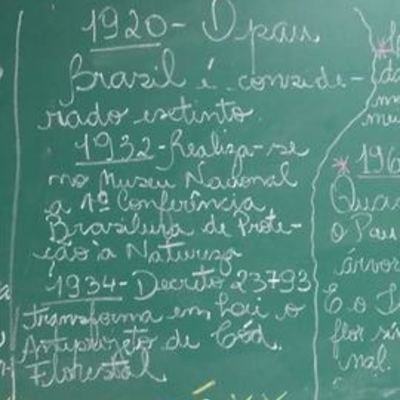 1920 - O pau
Brasil é conside-
rado extinto.
1932 - Realiza-se
no Museu Nacional
a 1ª Conferência
Brasileira de Prote-
ção à Natureza
1934 - Decreto 23793
transforma em Lei o
Anteprojeto de Cód.
Florestal
196
Quas
o Pau
árvor
E o I
flor sím
nal.